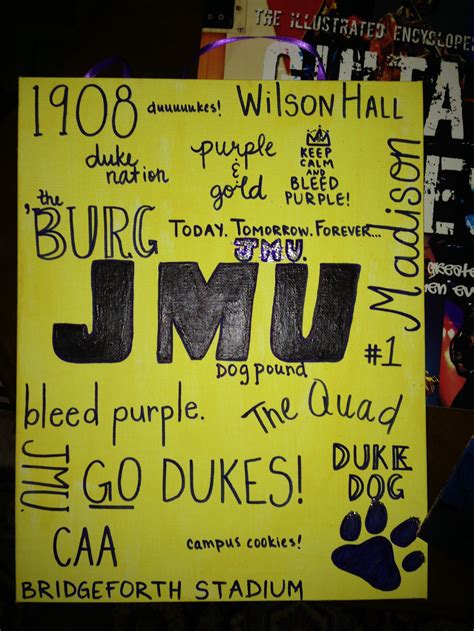 THE ILLUSTRATED ENCYCLOPE
1908
duuuuukes!
WILSON HALL
duke
nation
purple
&
gold
KEEP
CALM
AND
BLEED
PURPLE!
Madison
the
'BURG
TODAY. TOMORROW. FOREVER...
JMU.
JMU
#1
Dog pound
bleed purple.
The Quad
JMU.
GO DUKES!
DUKE
DOG
CAA
campus cookies!
BRIDGEFORTH STADIUM